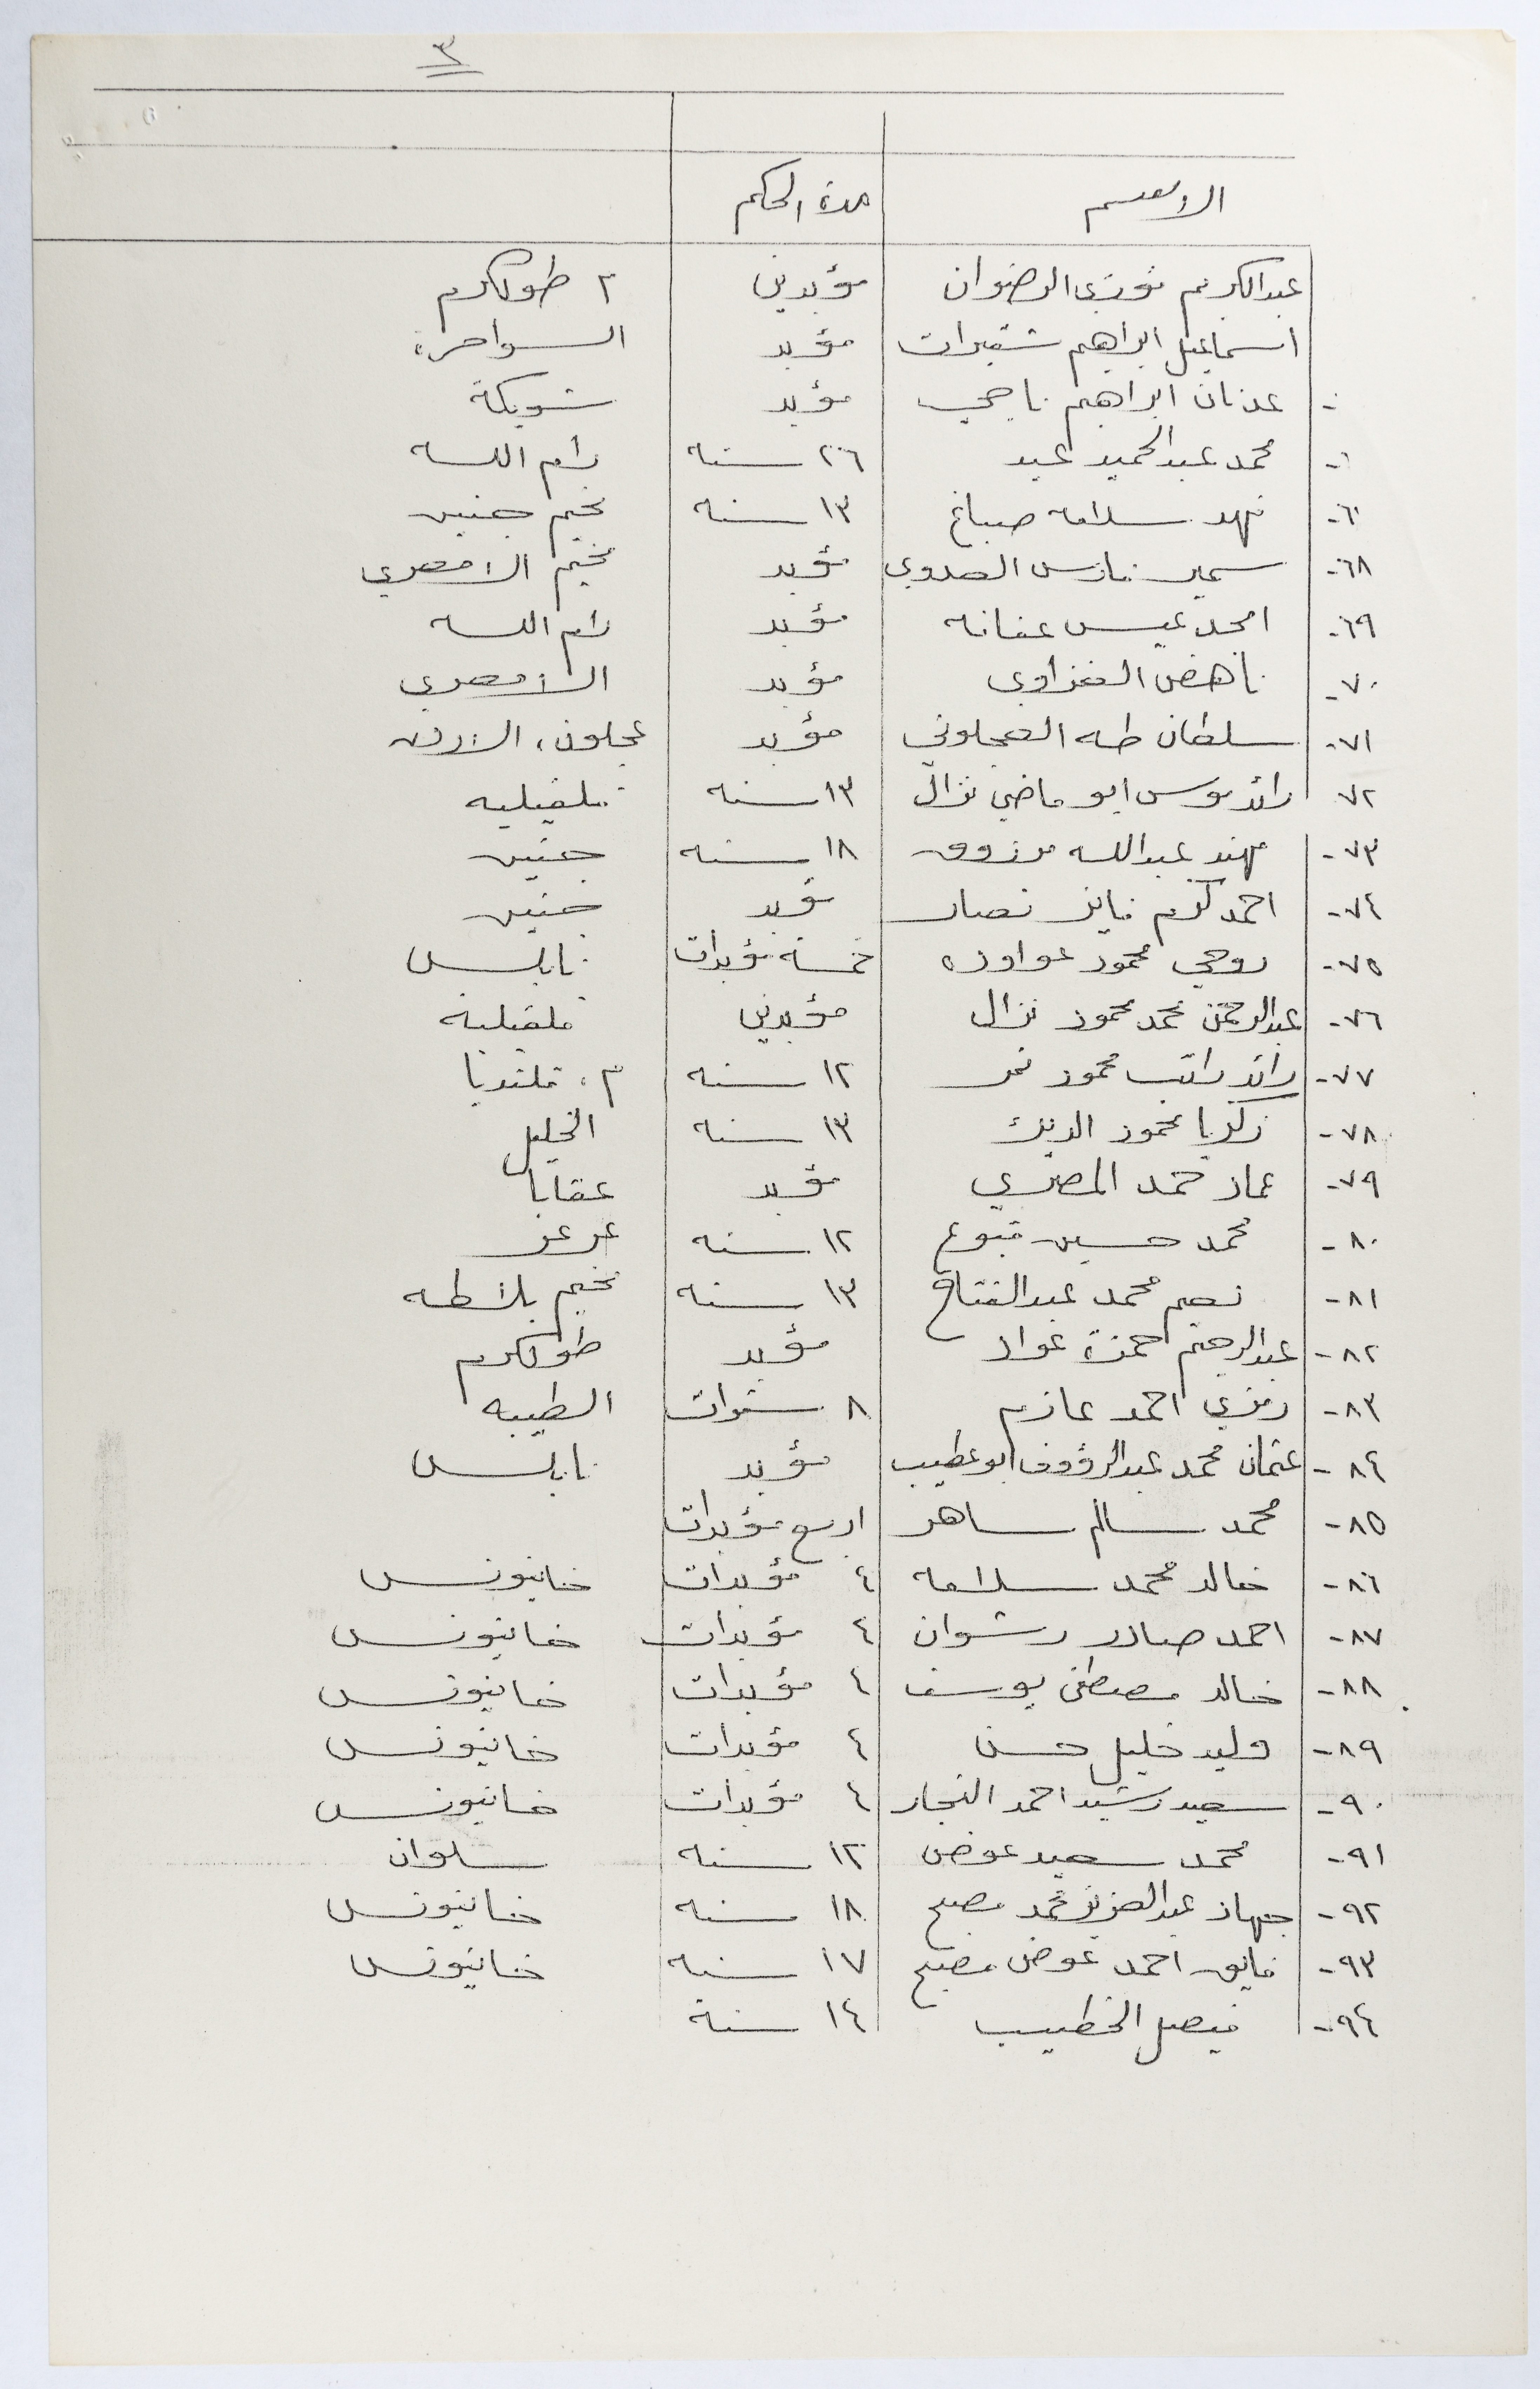 ٣
الاسم مدة الحكم
عبدالكريم فوزي الرضوان مؤبدين ٢ طولكرم
اسماعيل ابراهيم شقيرات مؤبد السواحرة
عدنان ابراهيم ناجي مؤبد شويكة
محمد عبدالحميد عبيد ٢٦ سنه رام الله
فهد سلامه صباغ ١٣ سنه مخيم جنين
٦٨- سمير فارس العدوي مؤبد مخيم الامعري
٦٩- امجد عيسى عنانه مؤبد رام الله
٧٠- ناهض الغزاوي مؤبد الامعري
٧١- سلطان طه العجلوني مؤبد عجلون، الاردن
٧٢ رائد موسى ابو ماضي نزال ١٣ سنه قلقيليه
٧٣- مهند عبدالله مرزوق ١٨ سنه جنين
٧٤- احمد كرم فايز نصار مؤبد جنين
٧٥- روحي محمود عواوده خمسة مؤبدات نابلس
٧٦- عبدالرحمن محمد محمود نزال مؤبدين قلقيلية
٧٧- رائد راتب محمود نمر ١٢ سنه م، قلنديا
٧٨- زكريا محمود الديك ١٣ سنه الخليل
٧٩- عماد حمد المصري مؤبد عقابا
٨٠- محمد حسين قبوع ١٢ سنه عرعر
٨١- نعيم محمد عبدالفتاح ١٣ سنه مخيم بلاطه
٨٢- عبدالرحيم حمزة عواد مؤبد طولكرم
٨٣- رمزي احمد عازم ٨ سنوات الطيبه
٨٤- عثمان محمد عبدالرؤوف ابوعطيب مؤبد نابلس
٨٥- محمد سالم ساهر اربع مؤبدات
٨٦- خالد محمد سلامه ٤ مؤبدات خانيونس
٨٧- احمد صادر رشوان ٤ مؤبدات خانيونس
٨٨- خالد مصطفى يوسف ٤ مؤبدات خانيونس
٨٩- وليد خليل حسن ٤ مؤبدات خانيونس
٩٠- سعيد رشيد احمد النجار ٤ مؤبدات خانيونس
٩١- محمد سعيد عوض ١٢ سنه سلوان
٩٢- جهاد عبدالعزيز محمد مصبح ١٨ سنه خانيونس
٩٣- فايق احمد عوض مصبح ١٧ سنه خانيونس
٩٤- فيصل الخطيب ١٤ سنة